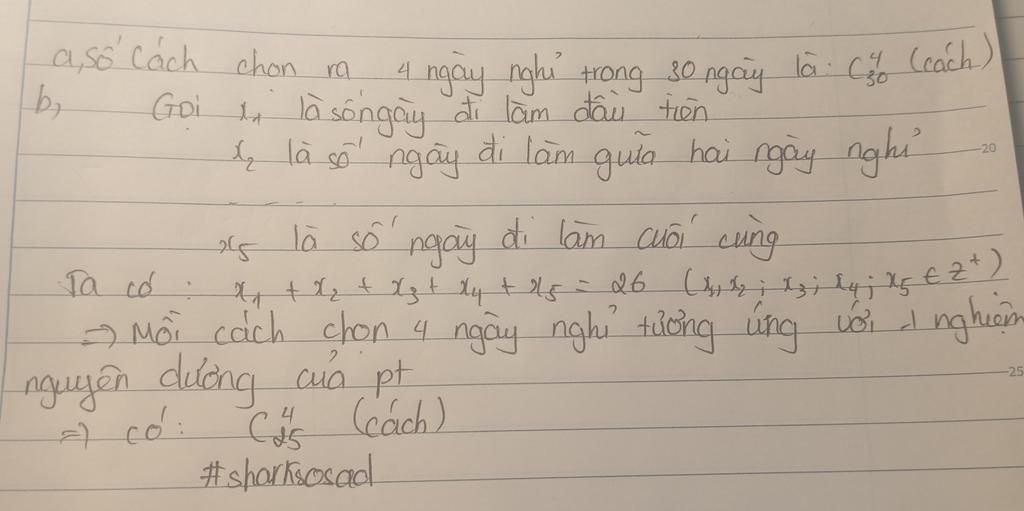 a, số cách chon ra 4 ngày nghỉ trong 30 ngày là: C₃₀⁴ (cách)
b, Goi x₁ là số ngày đi làm đầu tiên
x₂ là số ngày đi làm giữa hai ngày nghỉ
20
- - - -
x₅ là số ngày đi làm cuối cùng
Ta có : x₁ + x₂ + x₃ + x₄ + x₅ = 26 (x₁, x₂ ; x₃ ; x₄ ; x₅ ∈ Z⁺)
⇒ Mỗi cách chon 4 ngày nghỉ tương ứng với 1 nghiệm
nguyên dương của pt
25
⇒ có: C₂₅⁴ (cách)
#sharksosad